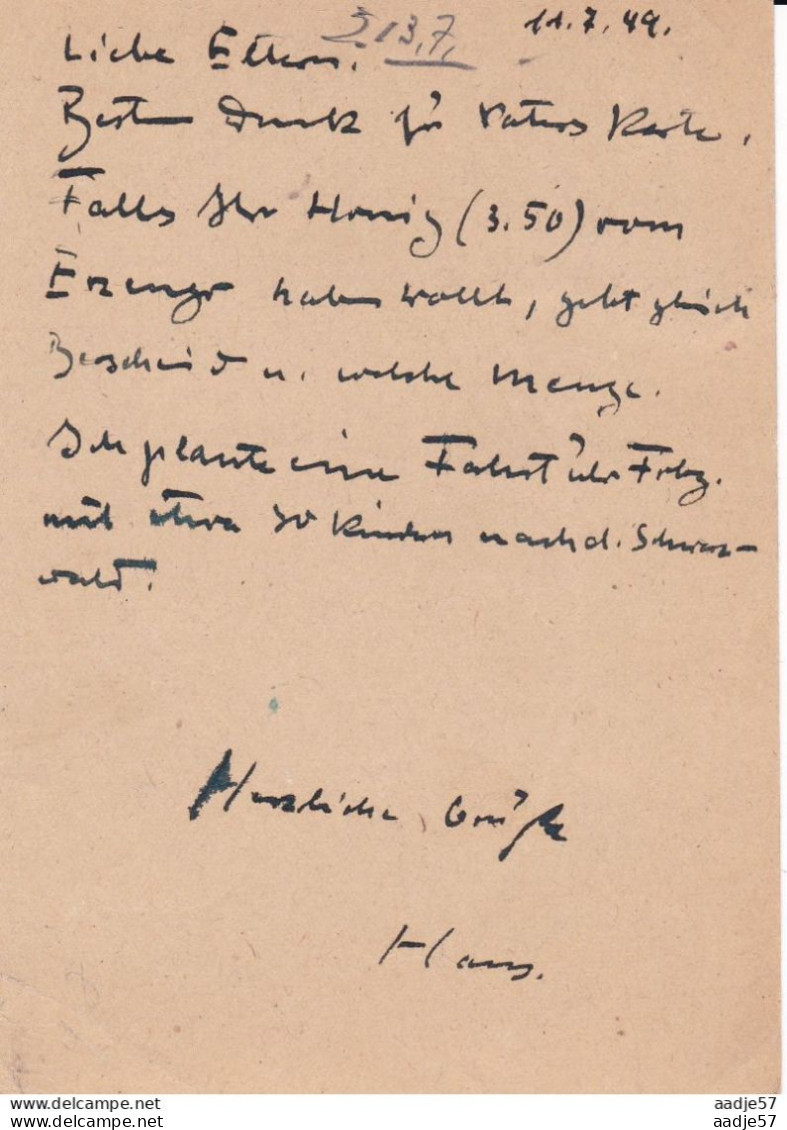 11.7.49.
13.7.
Liebe Eltern.
Besten Dank für Vaters Karte.
Falls Ihr Honig (3.50) vom
Erzeuger haben wollt, gebt gleich
Bescheid u. welche Menge.
Ich plante eine Fahrt über Frbg.
mit etwa 30 Kindern nach d. Schwarz-
wald.
Herzliche Grüße
Hans.
delcampe.net aadje57
delcampe.net aadje57